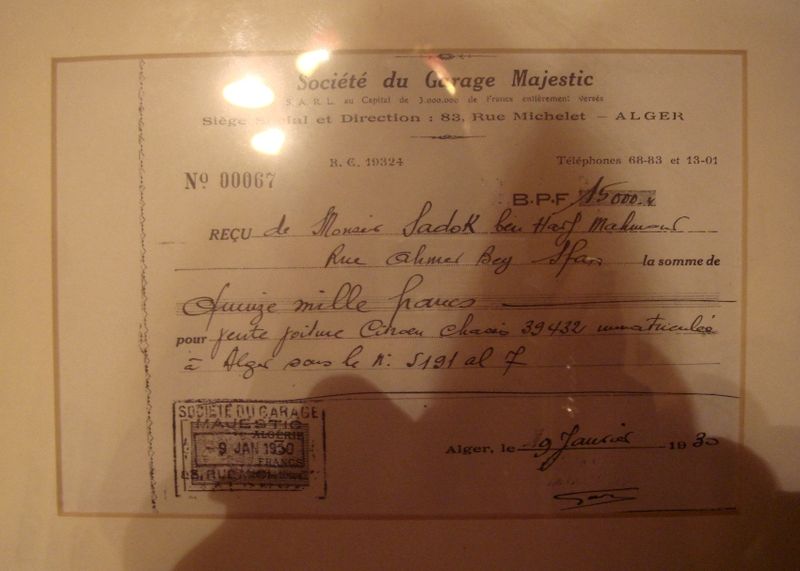 Société du Garage Majestic
S.A.R.L. au Capital de 3.000.000 de Francs entièrement versés
Siège Social et Direction : 83, Rue Michelet – ALGER
R. C. 19324
Téléphones 68-83 et 13-01
Nº 00067
B.P.F 15000.
REÇU de Monsier Sadok ben Hadj Mahmoud
Rue Ahmed Bey Sfax la somme de
Quinze mille francs
pour vente voiture Citroen Chasis 39432 immatriculée
à Alger sous le N: 5191 al 7
SOCIÉTÉ DU GARAGE
MAJESTIC
ALGÉRIE
9 JAN 1930
FRANCS
83, RUE
Alger, le 9 Janvier 1930